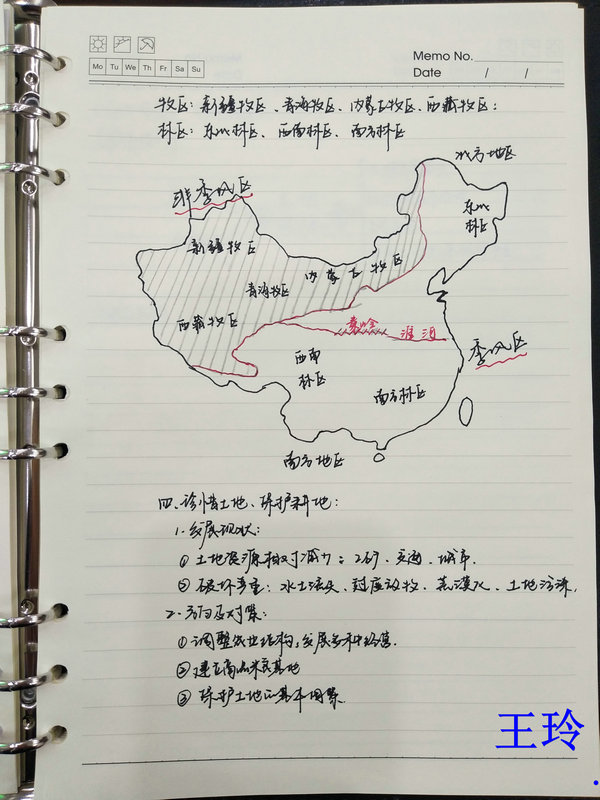 Memo No.
Mo Tu We Th Fr Sa Su
Date / /
牧区：新疆牧区、青海牧区、内蒙古牧区、西藏牧区：
林区：东北林区、西南林区、南方林区
北方地区
非季风区
东北
林区
新疆牧区
内蒙古牧区
青海牧区
西藏牧区
秦岭
淮河
季风区
西南
林区
南方林区
南方地区
四、珍惜土地、保护耕地：
1、发展现状：
①土地资源相对减少：工矿、交通、城市.
②破坏严重：水土流失、过度放牧、荒漠化、土地污染,
2、方向及对策：
①调整农业结构，发展多种经营.
②建立商品粮基地
③保护土地的基本国策.
王玲